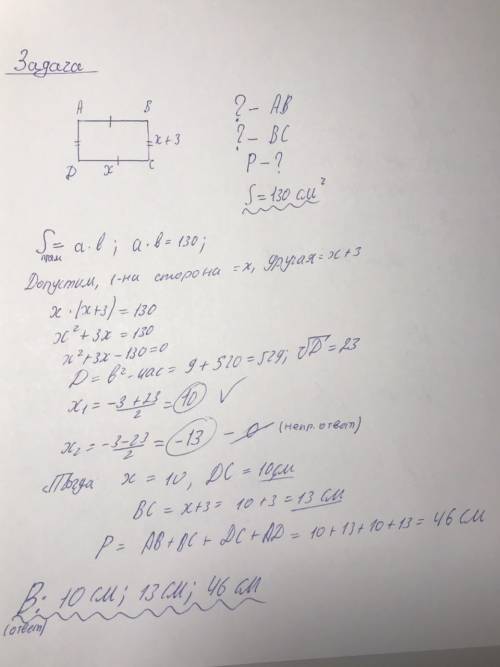 Задача
A B
x+3
D x C
? - AB
? - BC
P - ?
S = 130 см²
Sпам = a·b; a·b = 130;
Допустим, 1-на сторона = x, другая = x+3
x·(x+3) = 130
x² + 3x = 130
x² + 3x - 130 = 0
D = b² - 4ac = 9 + 520 = 529; √D = 23
x₁ = -3+23/2 = 10 ✓
x₂ = -3-23/2 = -13 - ∅ (непр. ответ)
Тогда x = 10, DC = 10см
BC = x+3 = 10+3 = 13 см
P = AB + BC + DC + AD = 10+13+10+13 = 46 см
В: 10 см; 13 см; 46 см
(ответ)